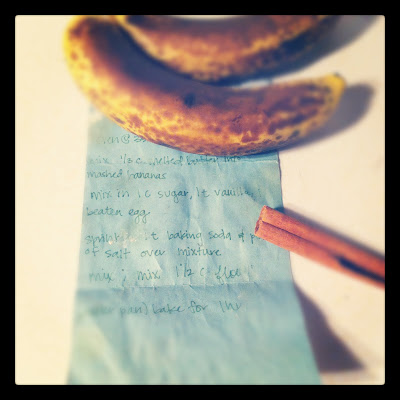 mix 1/3 c melted butter
mashed bananas
mix in 1 c sugar, 1t vanilla,
beaten egg
sprinkle 1t baking soda &
of salt over mixture
mix ; mix 1 1/2 c
pan) bake for 1 hr